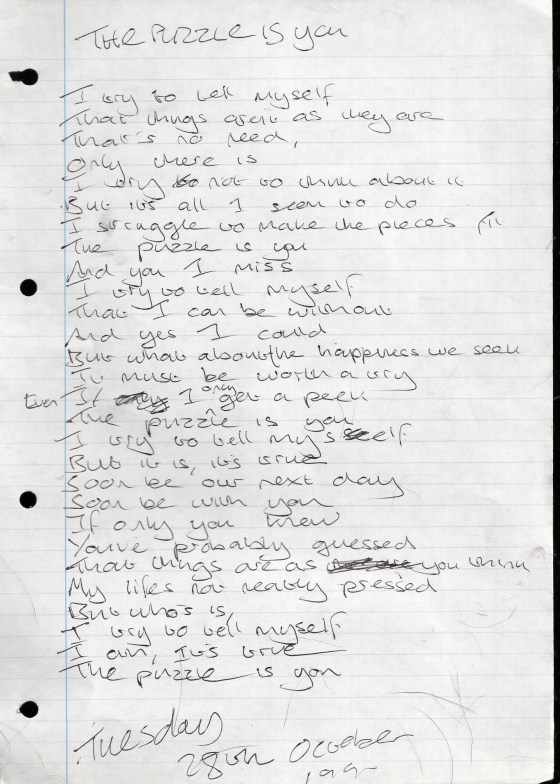 THE PUZZLE IS you
I try to tell myself
That things aren't as they are
That's no need,
Only there is
I try to not to think about it
But it's all I seem to do
I struggle to make the pieces fit
The puzzle is you
And you I miss
I try to tell myself
That I can be without
And yes I could
But what about the happiness we seek
It must be worth a try
Even If I only get a peek
The puzzle is you
I try to tell myself
But it is, it's true
Soon be our next day
Soon be with you
If only you knew
You've probably guessed
That things are as you think
My lifes not neatly pressed
But who's is,
I try to tell myself
I am, It's true
The puzzle is you
Tuesday
28th October